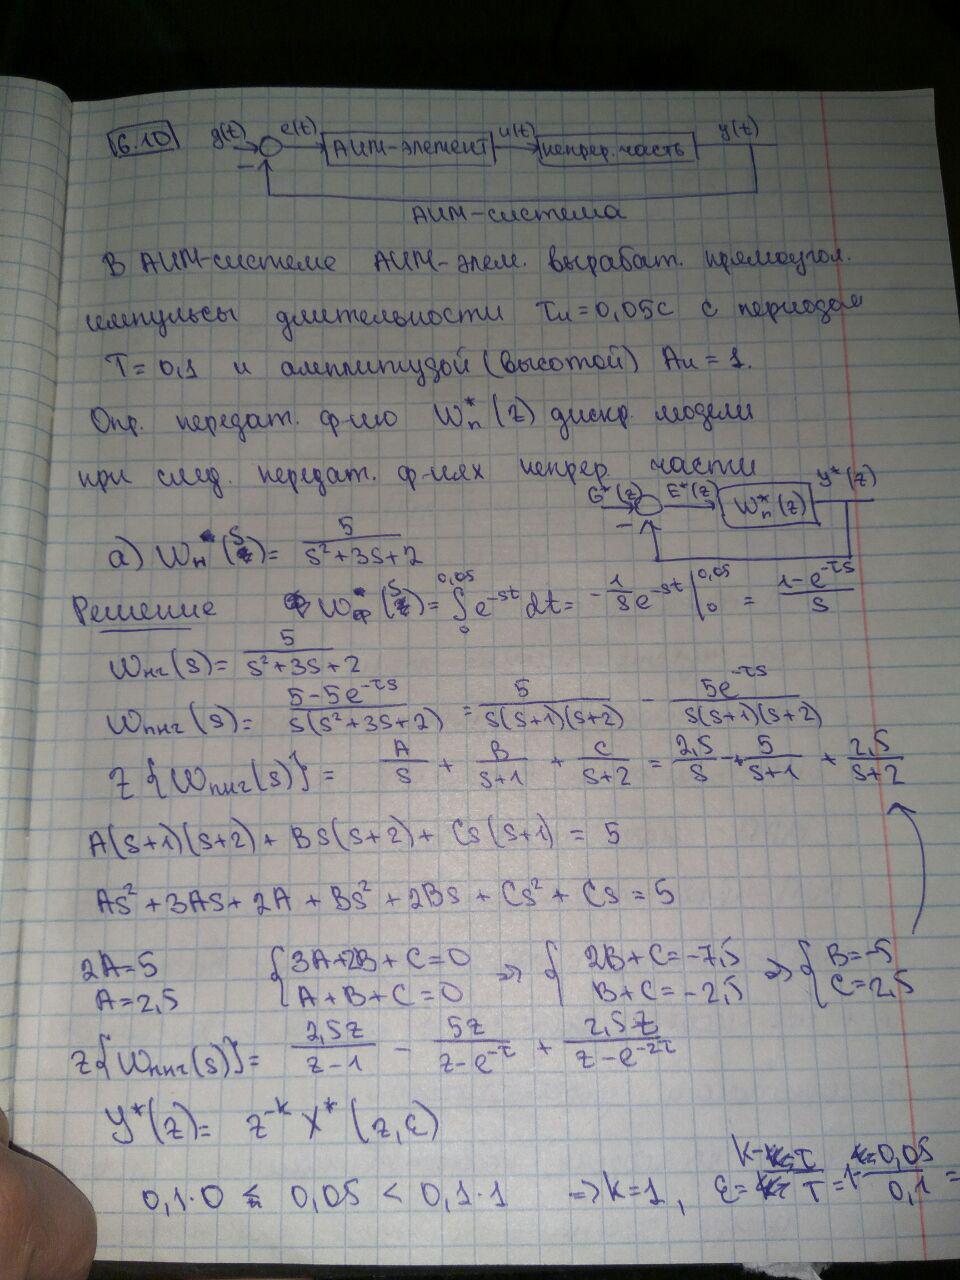 6.10
g(t) e(t) АИМ-элемент u(t) непрер. часть y(t)
−
АИМ-система
В АИМ-системе АИМ-элем. вырабат. прямоугол.
импульсы длительности τи=0,05с с периодом
T=0,1 и амплитудой (высотой) Aи=1.
Опр. передат. ф-ию Wп*(z) дискр. модели
при след. передат. ф-иях непрер. части
G*(z) E*(z) Wп*(z) Y*(z)
−
а) Wн(s)= 5/(s²+3s+2)
Решение W(s)= ∫₀^0,05 e^-st dt = -1/s e^-st |₀^0,05 = (1-e^-τs)/s
Wнч(s)= 5/(s²+3s+2)
Wпнч(s)= (5-5e^-τs)/(s(s²+3s+2)) = 5/(s(s+1)(s+2)) - 5e^-τs/(s(s+1)(s+2))
Z{Wпнч(s)}= A/s + B/(s+1) + C/(s+2) = 2,5/s + 5/(s+1) + 2,5/(s+2)
A(s+1)(s+2)+Bs(s+2)+Cs(s+1)=5
As²+3As+2A+Bs²+2Bs+Cs²+Cs=5
2A=5 {3A+2B+C=0 => {2B+C=-7,5 => {B=-5
A=2,5 A+B+C=0 B+C=-2,5 C=2,5
Z{Wпнч(s)}= 2,5z/(z-1) - 5z/(z-e^-τ) + 2,5z/(z-e^-2τ)
Y*(z)= z^-k X*(z,ε)
0,1·0 ≤ 0,05 < 0,1·1 => k=1, ε= k- τ/T =1- 0,05/0,1 =